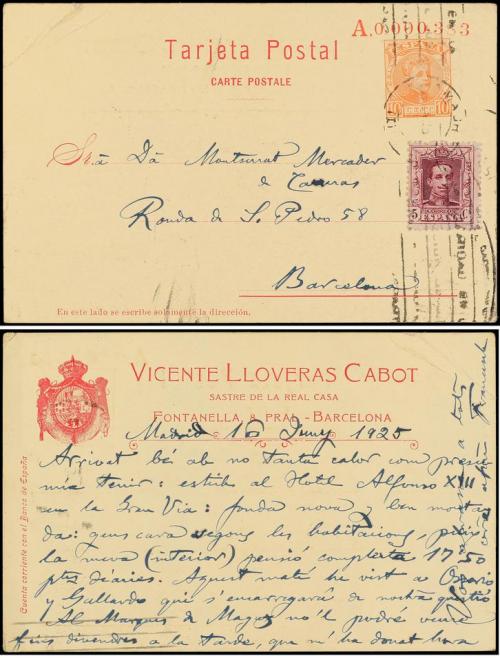 A.0,000,383
Tarjeta Postal
CARTE POSTALE
ESPAÑA
10 10
Sra Da Montserrat Mercader
de
Ronda de S. Pedro 58
Barcelona
5 C.
ESPAÑA
En este lado se escribe solamente la dirección.
VICENTE LLOVERAS CABOT
SASTRE DE LA REAL CASA
FONTANELLA, 8, PRAL - BARCELONA
Cuenta corriente con el Banco de España
Madrid 16 Juny 1925
Arrivat bé ab no tanta calor com presu
mia tenir: estich al Hotel Alfonso XIII
en la Gran Via: fonda nova y ben monta
da: quens cara segons les habitacions, per
la meva (interior) pensió complerta 17'50
ptes diaries. Aquest matí he vist a Osorio
y Gallardo que s'encarregará de nostra
Al Marques de no'l podré veure
fins divendres a la tarde, que m'ha donat hora
a tots